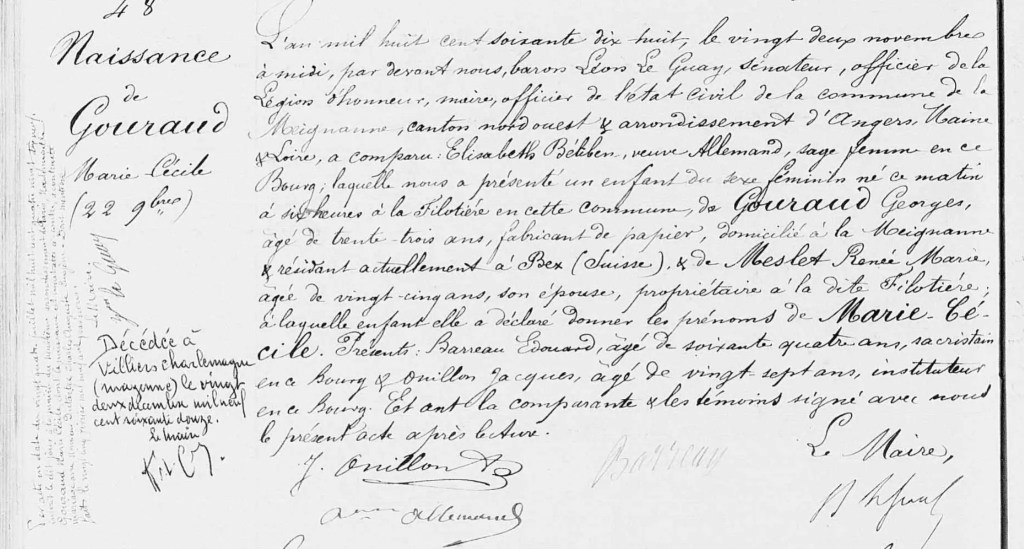 48
Naissance
de
Gouraud
Marie Cécile
(22 9bre)
Décédée à
Villiers charlemagne
(mayenne) le vingt
deux décembre mil neuf
cent soixante douze.
Le Maire
L'an mil huit cent soixante dix huit, le vingt deux novembre
à midi, par devant nous, baron Léon Le Guay, sénateur, officier de la
Légion d'honneur, maire, officier de l'état civil de la commune de la
Meignanne, canton nord ouest & arrondissement d'Angers, Maine
& Loire, a comparu : Elisabeth Bétiben, veuve Allemand, sage femme en ce
Bourg ; laquelle nous a présenté un enfant du sexe féminin né ce matin
à six heures à la Filotière en cette commune, de Gouraud Georges,
âgé de trente-trois ans, fabricant de papier, domicilié à la Meignanne
& résidant actuellement à Bex (Suisse), & de Meslet Renée Marie,
âgée de vingt-cinq ans, son épouse, propriétaire à la dite Filotière ;
à laquelle enfant elle a déclaré donner les prénoms de Marie-Cé-
cile. Présents : Barreau Edouard, âgé de soixante quatre ans, sacristain
en ce Bourg & Ouillon Jacques, âgé de vingt-sept ans, instituteur
en ce Bourg. Et ont la comparante & les témoins signé avec nous
le présent acte après lecture.
J. Ouillon
Barreau
Le Maire,
allemand